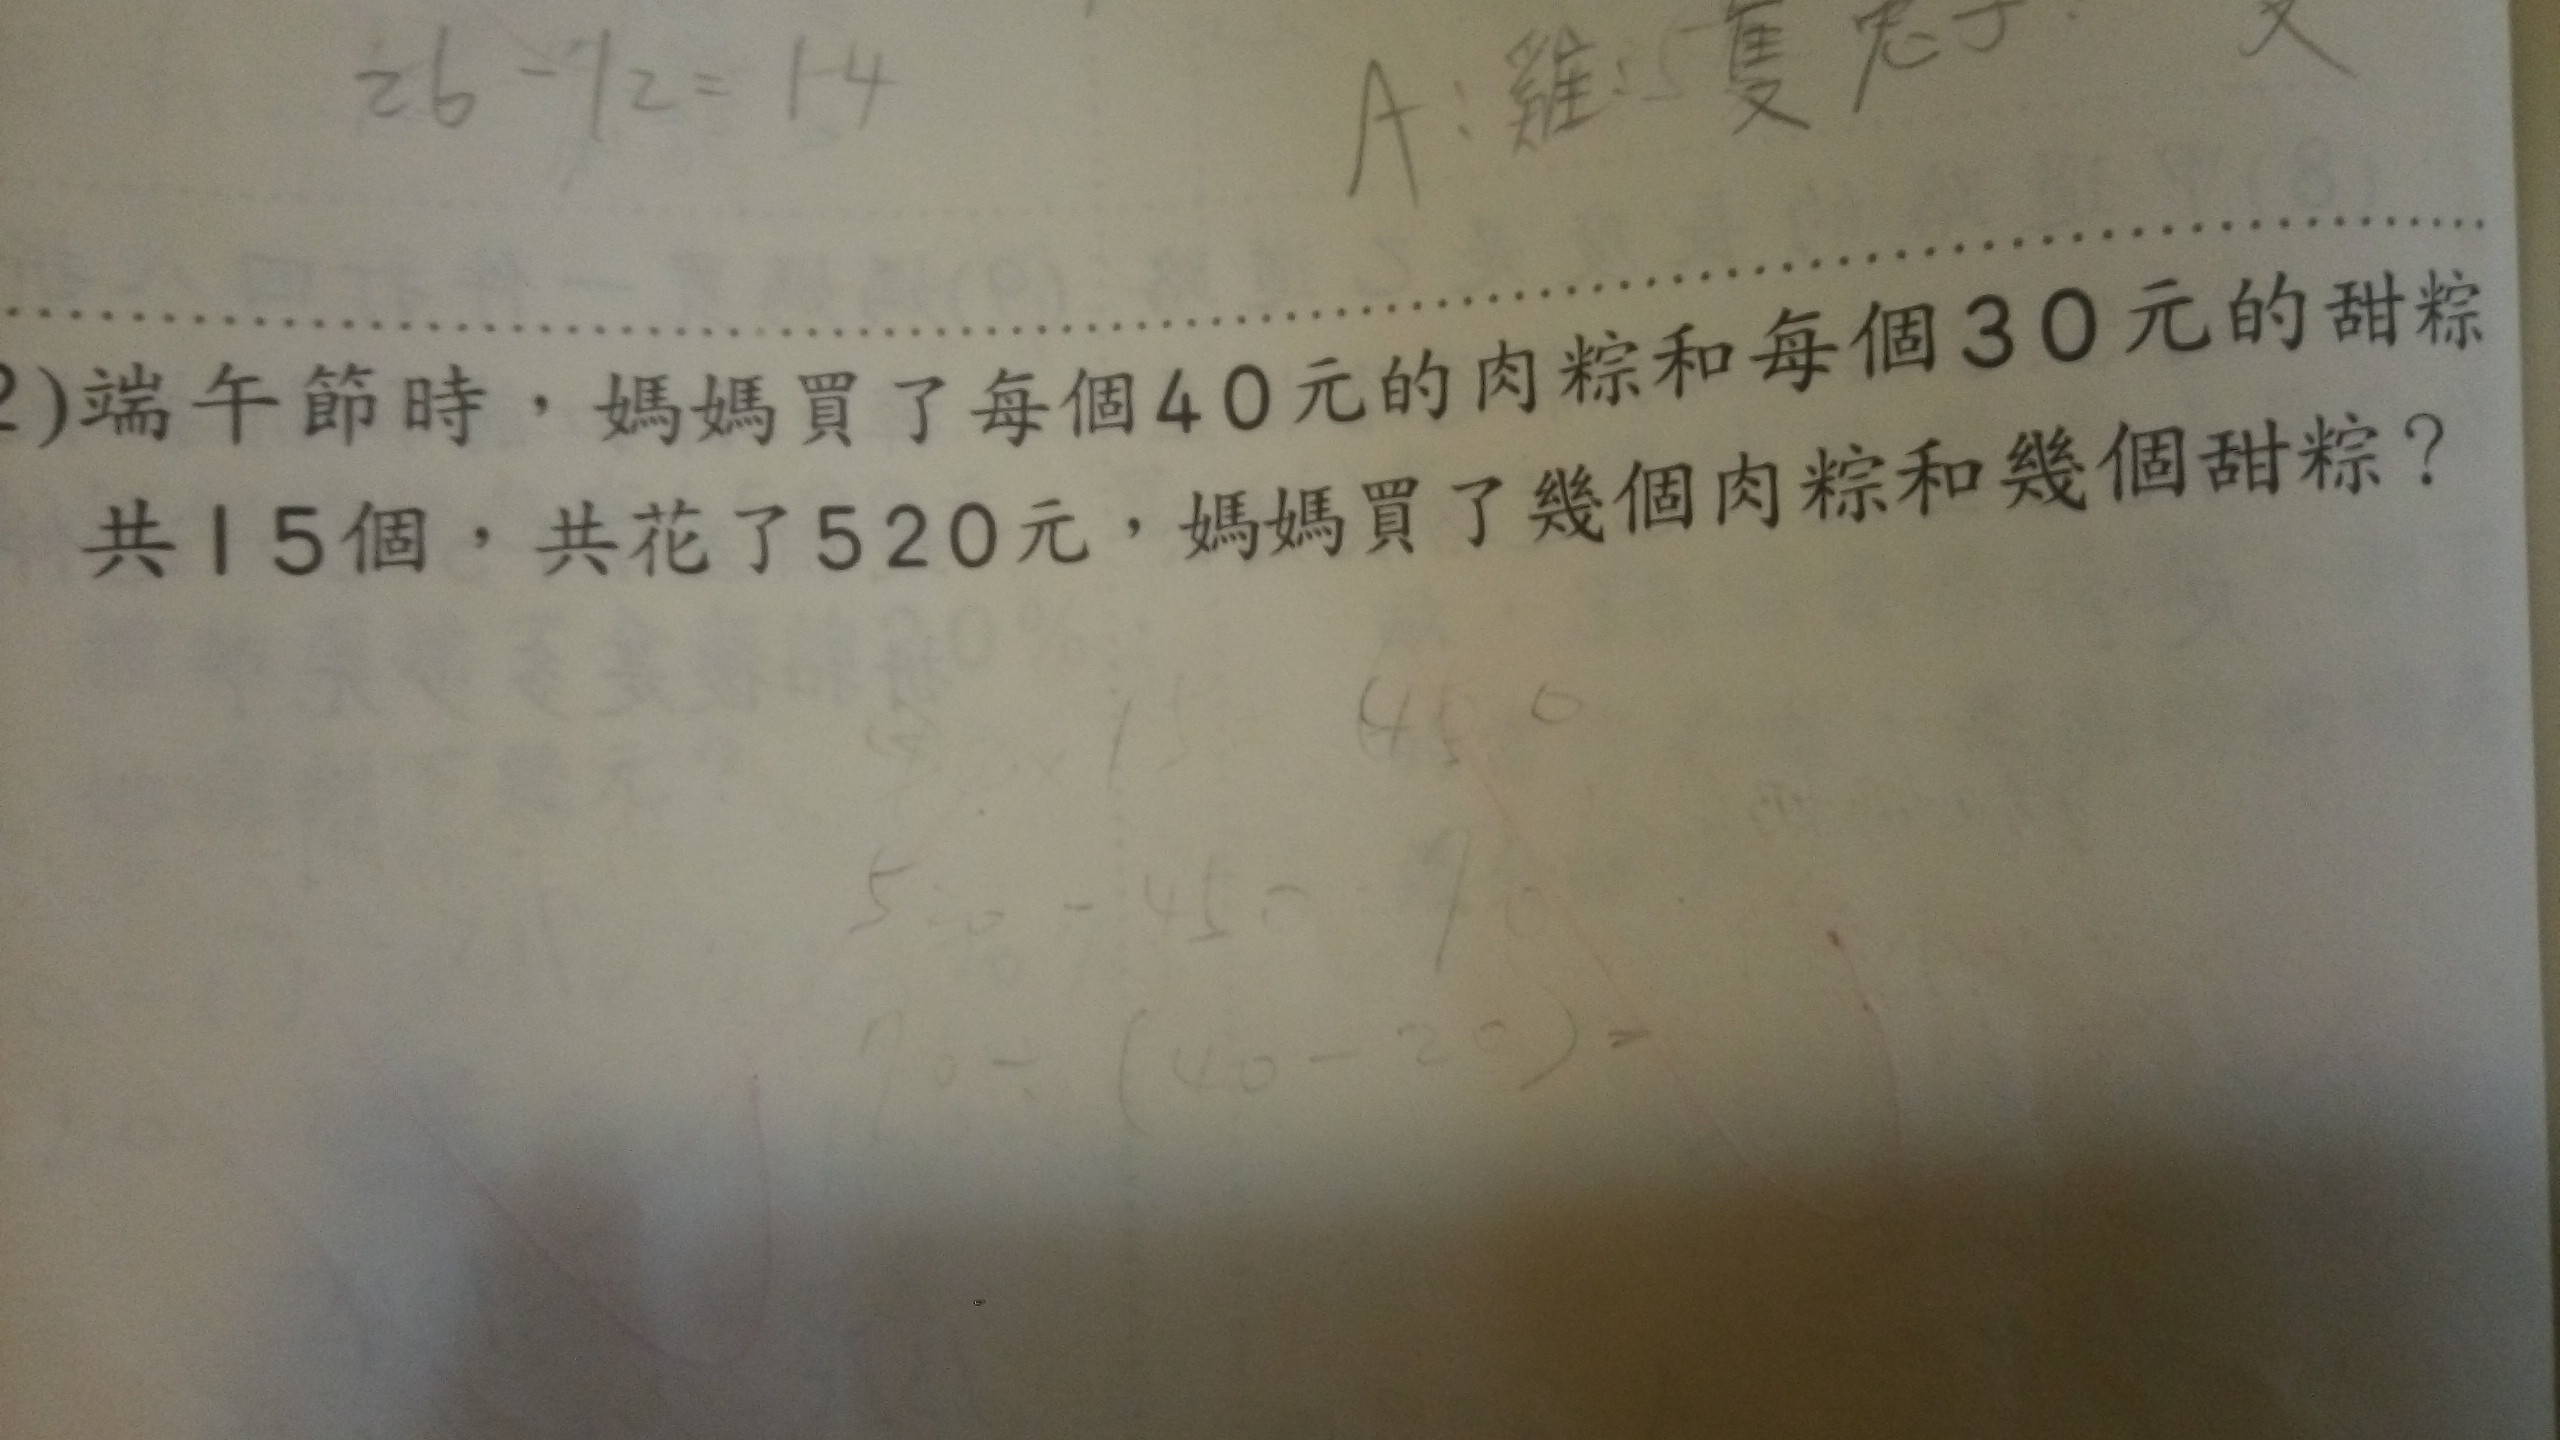 26-12=14
A:雞:5隻 兔子:
2)端午節時,媽媽買了每個40元的肉粽和每個30元的甜粽
共15個,共花了520元,媽媽買了幾個肉粽和幾個甜粽?
15 450
520-450=70
70÷(40-20)=